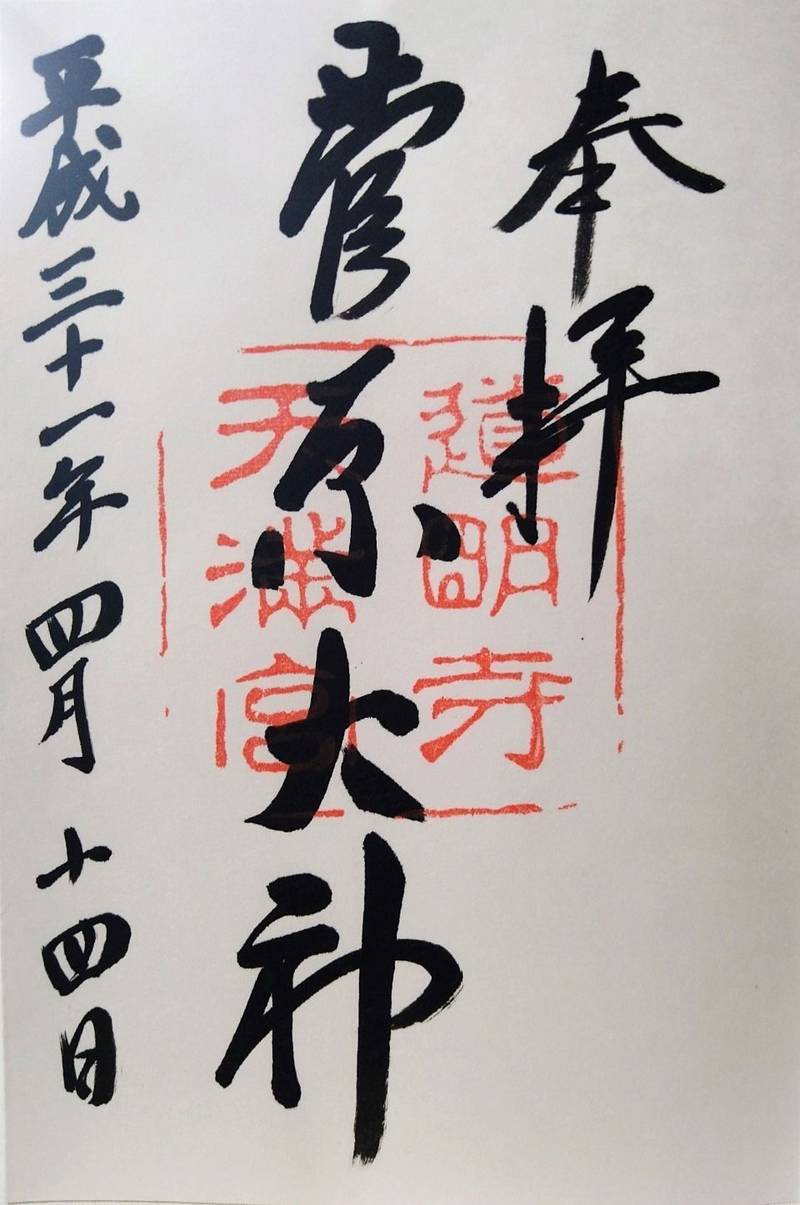 奉拝
道明寺
天満宮
菅原大神
平成三十一年四月十四日